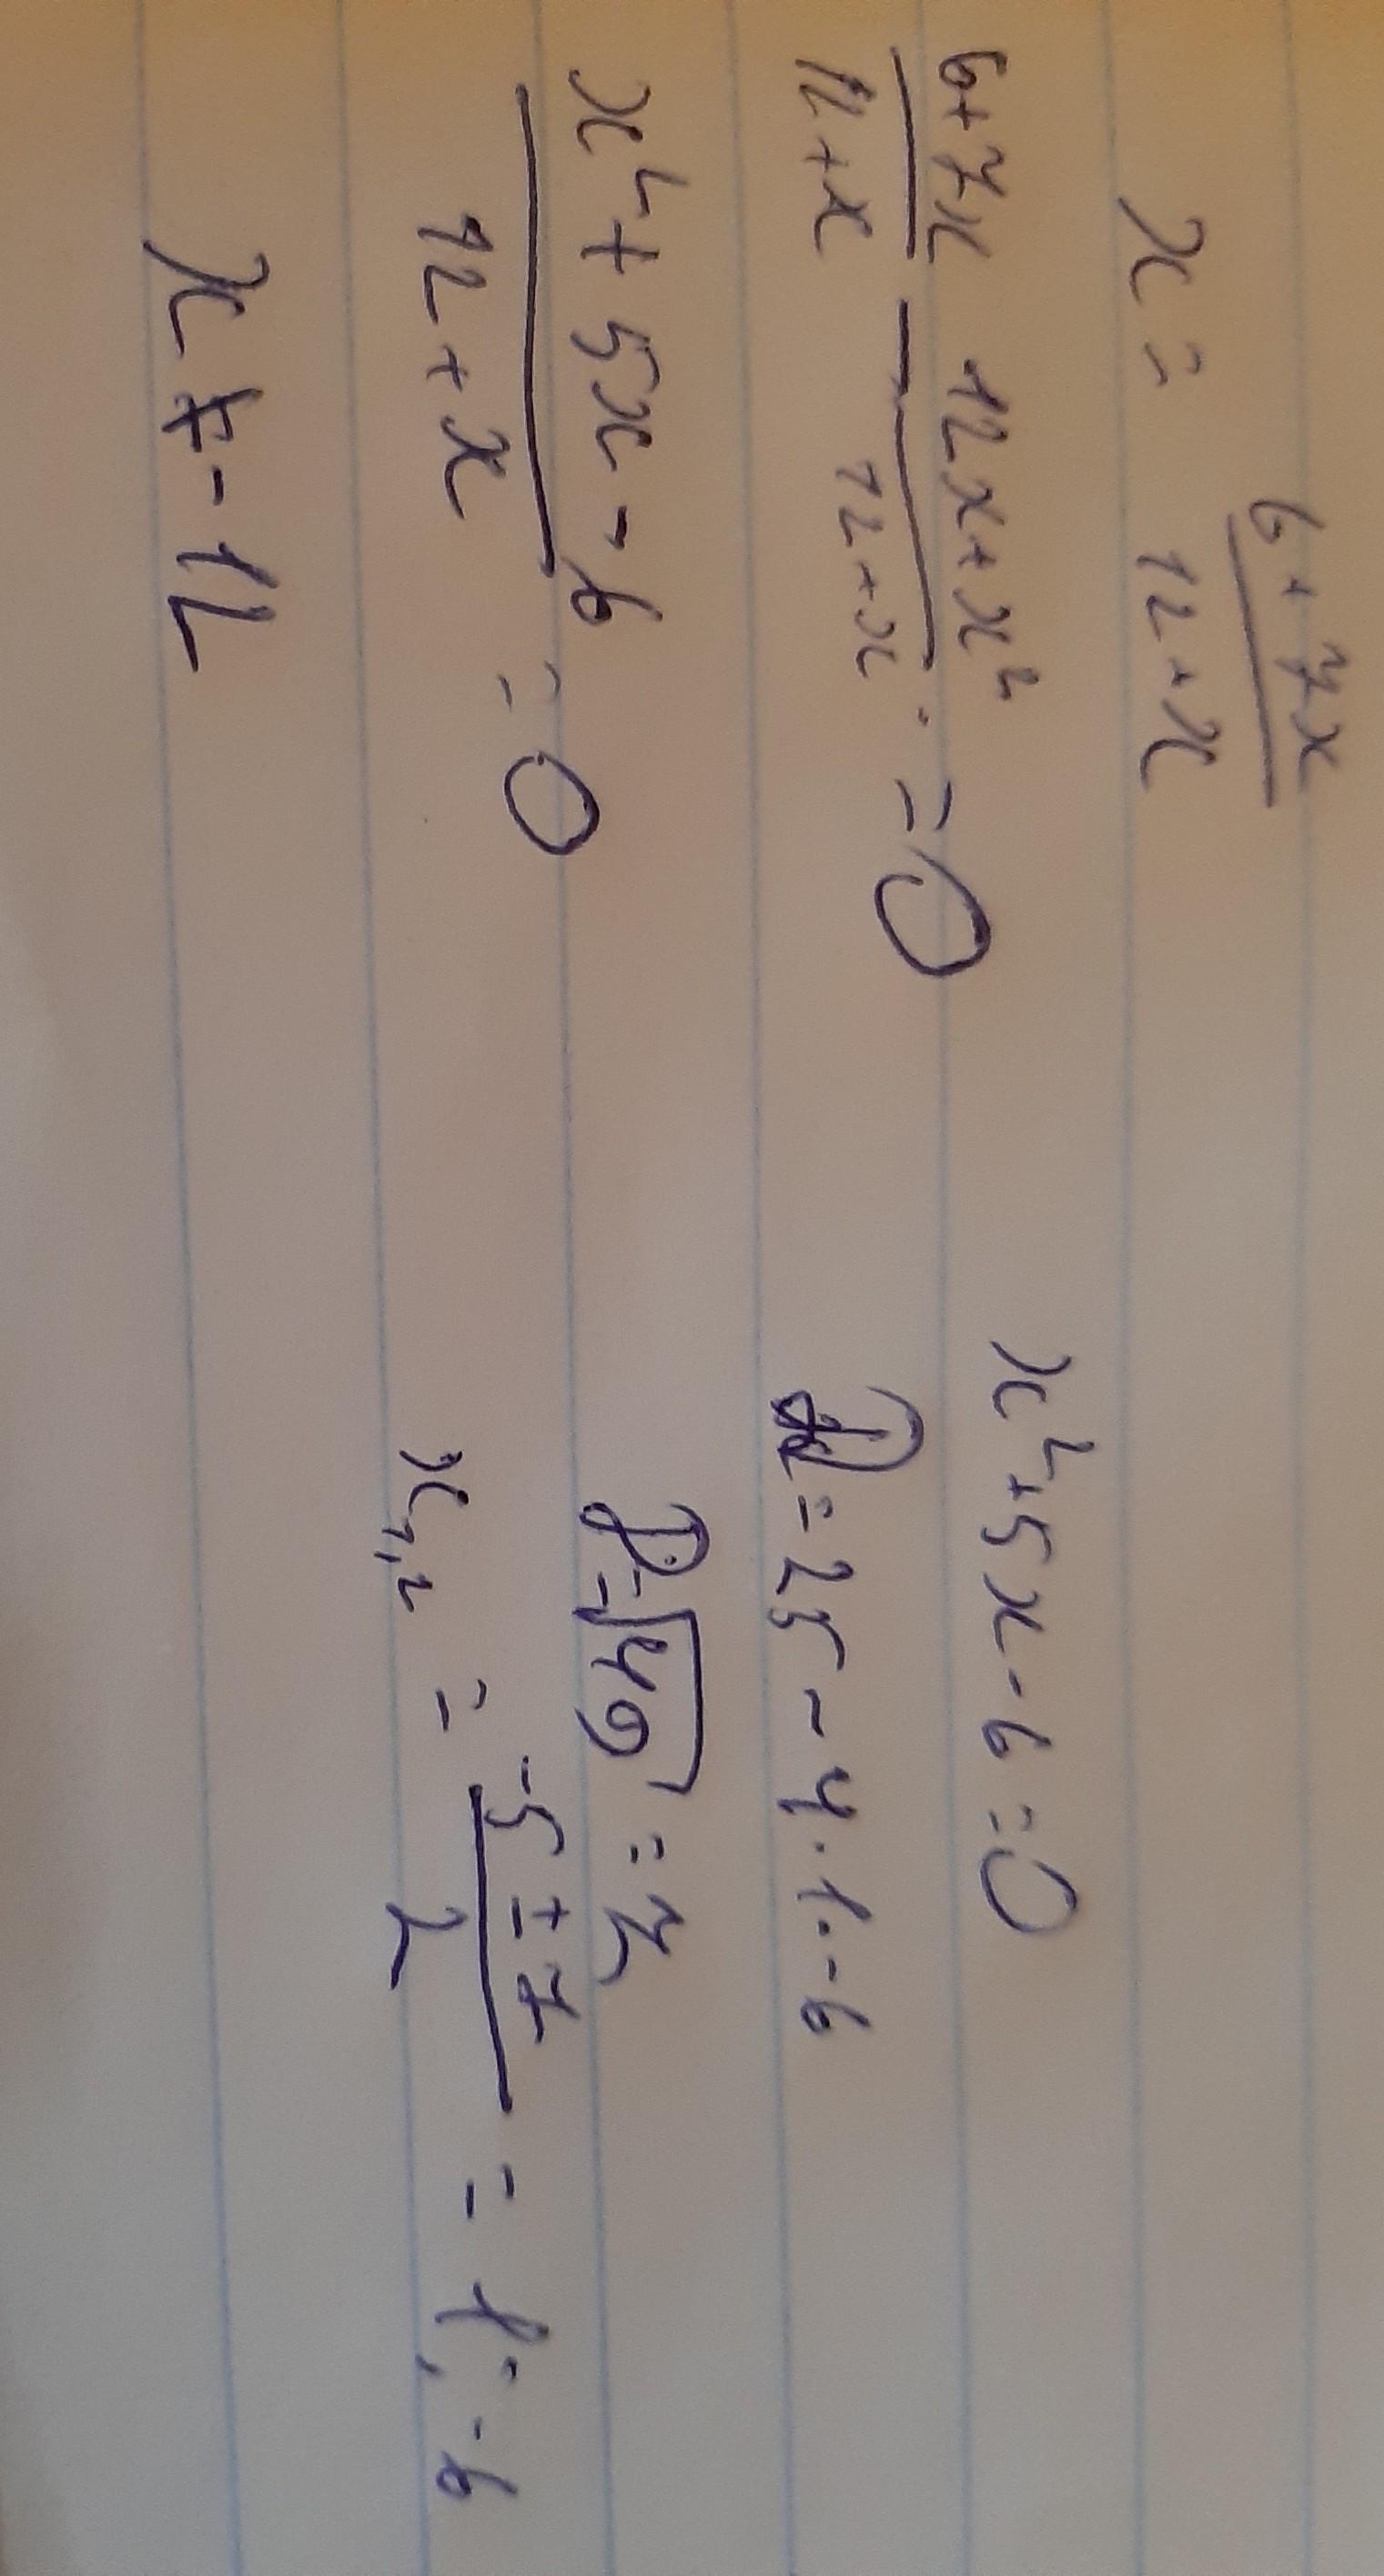 x = (6+7x)/(12+x)
(6+7x)/(12+x) - (12x+x²)/(12+x) = 0
(x²+5x-6)/(12+x) = 0
x ≠ -12
x²+5x-6=0
D=25-4·1·-6
D=√49=7
x₁,₂ = (-5±7)/2 = 1; -6